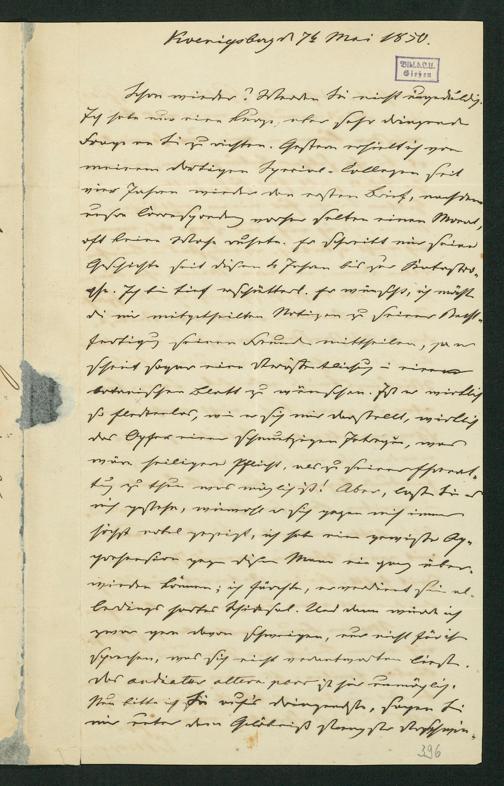 Koenigsberg d 7t Mai 1850.
Bibl. d. L. U.
Gießen
Schon wieder? Werden Sie nicht ungeduldig.
Ich habe nur eine kurze, aber sehr dringende
Frage an Sie zu richten. Gestern erhielt ich von
meinem dortigen Special-Collegen seit
vier Jahren wieder den ersten Brief, nachdem
unsre Correspondenz vorher selten einen Monat,
oft keine Woche ruhete. Er schreibt mir seine
Geschichte seit diesen 4 Jahren bis zur Katastro-
phe. Ich bin tief erschüttert. Er wünscht, ich möchte
die mir mitgetheilten Notizen zu seiner Recht-
fertigung seinen Freunden mittheilen, ja er
scheint sogar eine Veröffentlichung in einem
botanischen Blatt zu wünschen. Ist er wirklich
so fleckenlos, wie er sich mir darstellt, wirklich
das Opfer einer schmutzigen Intrigue, was
wäre heiligere Pflicht, als zu seiner Ehrenret-
tung zu thun was möglich ist! Aber, lassen Sie es
mich gestehn, wiewohl er sich gegen mich immer
höchst nobel gezeigt, ich habe eine gewisse Ap-
prehension gegen diesen Mann nie ganz über-
winden können; ich fürchte, er verdient sein al-
lerdings hartes Schicksal. Und dann würde ich
zwar gern davon schweigen, nur nicht für ihn
sprechen, was sich nicht verantworten liesse.
Das audiatur altera pars ist hier unmöglich.
Nun bitte ich Sie aufs dringendste, sagen Sie
mir unter dem Gelöbniß strengster Verschwie-
396